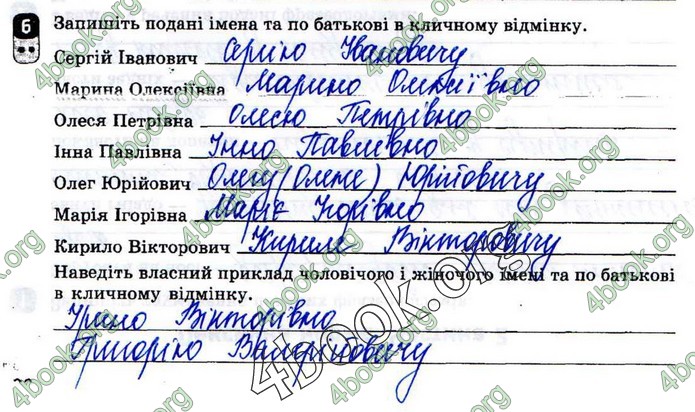 6 Запишіть подані імена та по батькові в кличному відмінку.
Сергій Іванович Сергію Івановичу
Марина Олексіївна Марино Олексіївно
Олеся Петрівна Олесю Петрівно
Інна Павлівна Інно Павлівно
Олег Юрійович Олегу (Олеже) Юрійовичу
Марія Ігорівна Маріє Ігорівно
Кирило Вікторович Кириле Вікторовичу
Наведіть власний приклад чоловічого і жіночого імені та по батькові
в кличному відмінку.
Ірино Вікторівно
Григорію Валерійовичу
4book.org